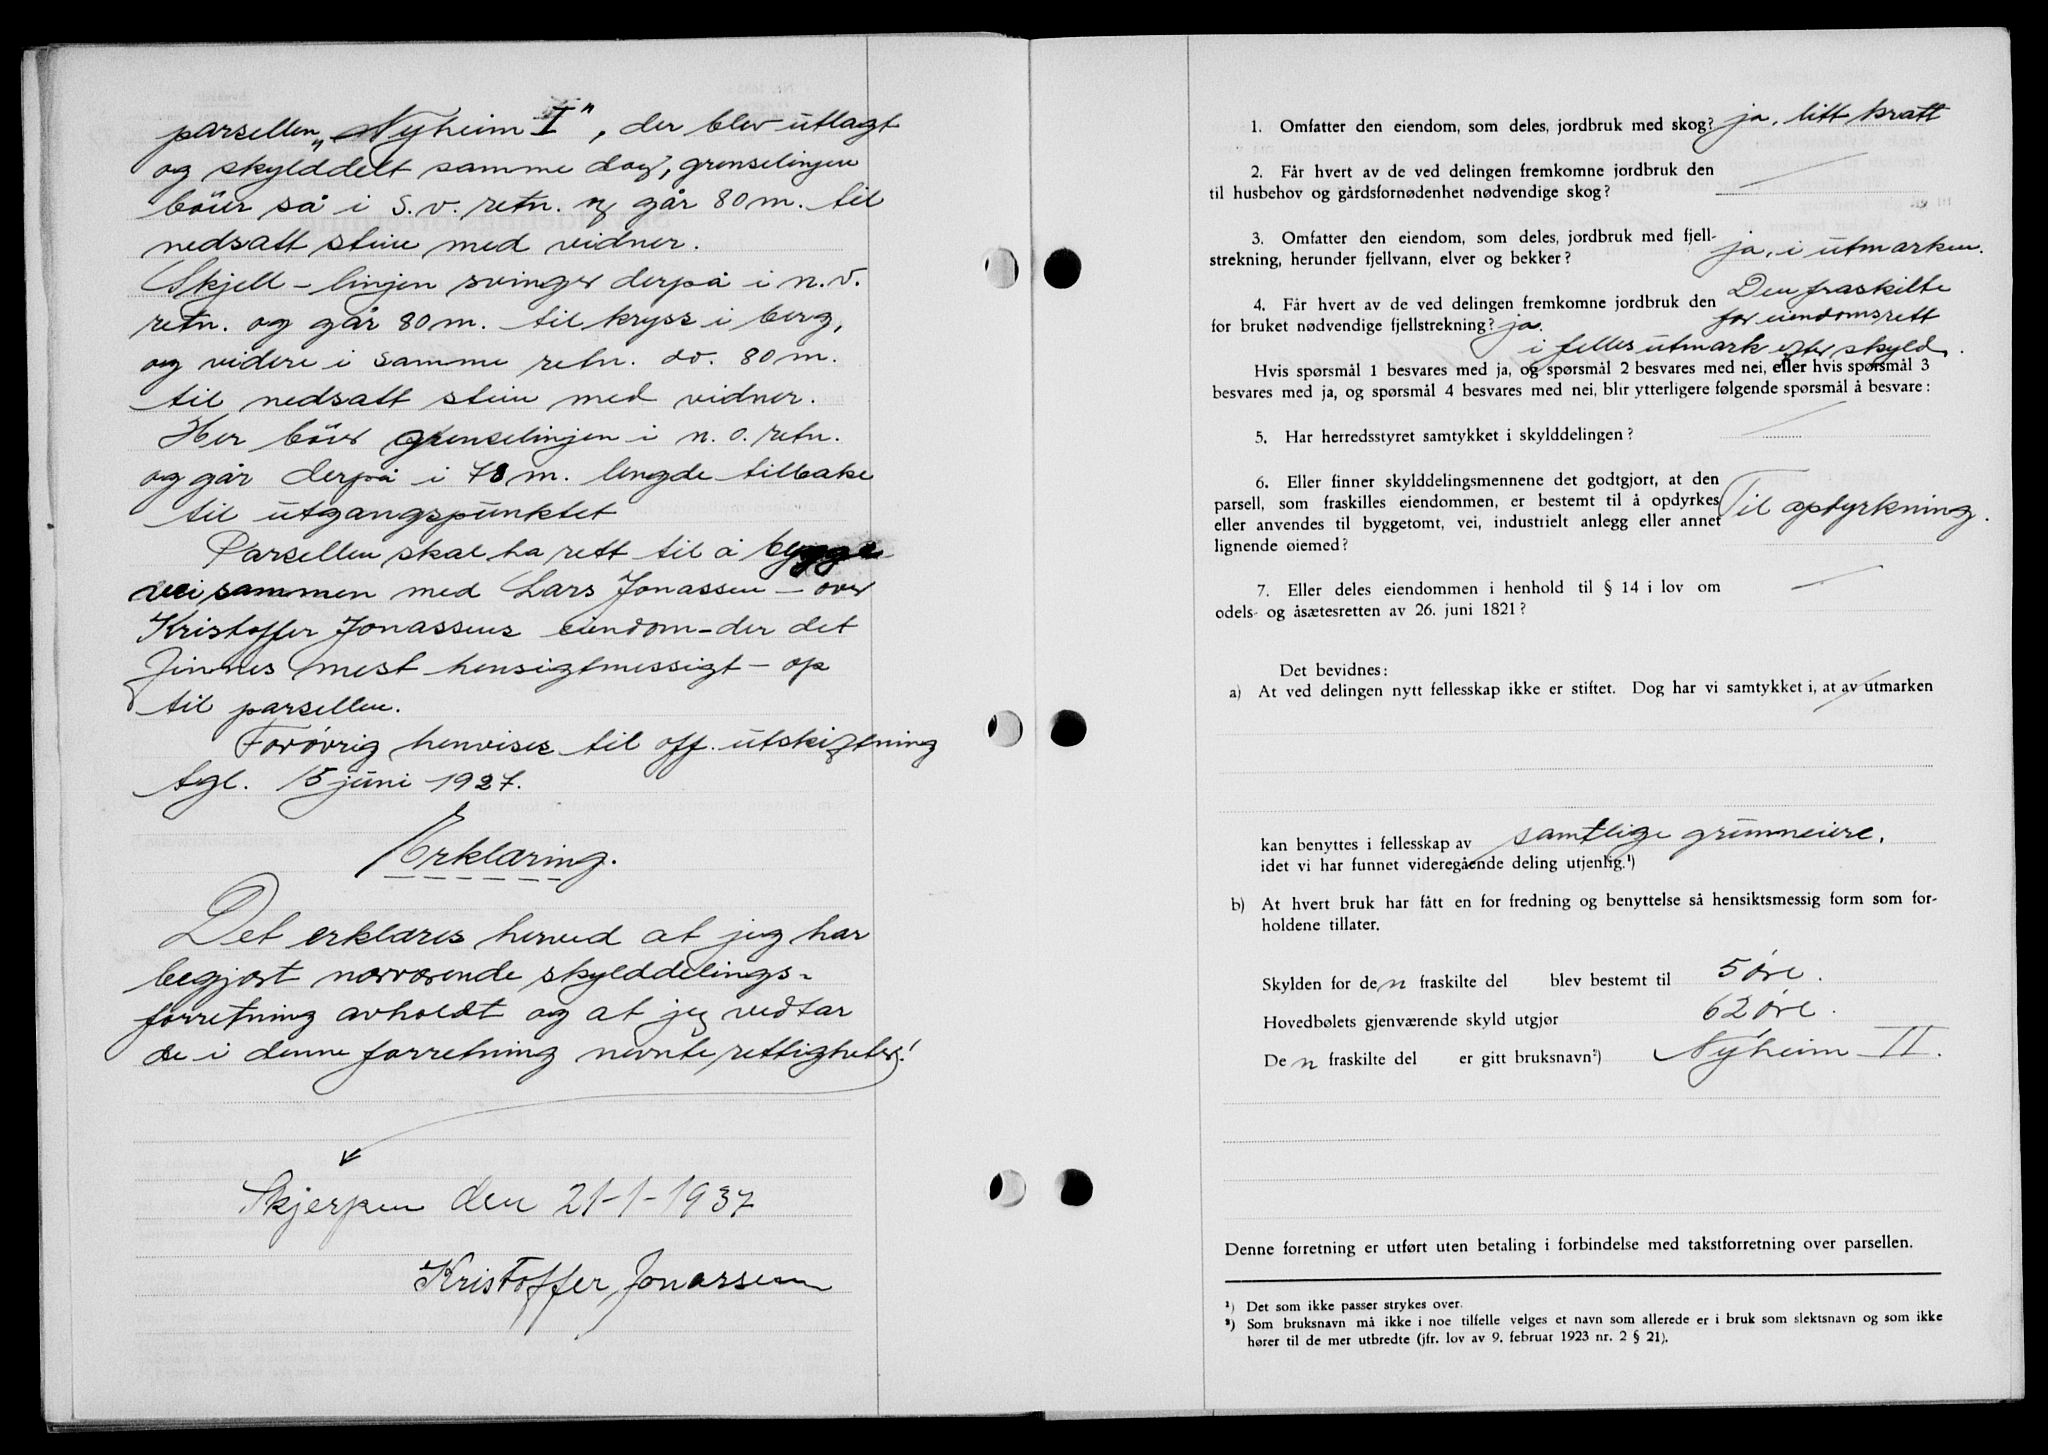 parsellen „Nyheim I", der blev utlagt
og skylddelt samme dag, grenselinjen
böier så i S.v. retn. og går 80 m. til
nedsatt stein med vidner.
Skjell-linjen svinger derpå i n.v.
retn. og går 80 m. til kryss i berg,
og videre i samme retn. do. 80 m.
til nedsatt stein med vidner.
Her böier grenselinjen i n.o. retn.
og går derpå i 78 m. lengde tilbake
til utgangspunktet
Parsellen skal ha rett til å bygge
vei sammen med Lars Jonassen – over
Kristoffer Jonassens eiendom – der det
finnes mest hensigtmessigt – op
til parsellen.
Forøvrig henvises til off. utskiftning
tgl. 15 juni 1927.
Erklæring.
Det erklæres herved at jeg har
begjært nærværende skylddelings-
forretning avholdt og at jeg vedtar
de i denne forretning nevnte rettigheter!
Skjerpen den 21-1-1937
Kristoffer Jonassen
1. Omfatter den eiendom, som deles, jordbruk med skog? ja, litt kratt
2. Får hvert av de ved delingen fremkomne jordbruk den
til husbehov og gårdsfornødenhet nødvendige skog? —
3. Omfatter den eiendom, som deles, jordbruk med fjell-
strekning, herunder fjellvann, elver og bekker? ja, i utmarken.
4. Får hvert av de ved delingen fremkomne jordbruk den Den fraskilte
for bruket nødvendige fjellstrekning? ja. får eiendomsrett
i felles utmark efter skyld.
Hvis spørsmål 1 besvares med ja, og spørsmål 2 besvares med nei, eller hvis spørsmål 3
besvares med ja, og spørsmål 4 besvares med nei, blir ytterligere følgende spørsmål å besvare:
5. Har herredsstyret samtykket i skylddelingen? —
6. Eller finner skylddelingsmennene det godtgjort, at den
parsell, som fraskilles eiendommen, er bestemt til å opdyrkes
eller anvendes til byggetomt, vei, industrielt anlegg eller annet Til opdyrkning.
lignende øiemed?
7. Eller deles eiendommen i henhold til § 14 i lov om
odels- og åsætesretten av 26. juni 1821? —
Det bevidnes:
a) At ved delingen nytt fellesskap ikke er stiftet. Dog har vi samtykket i, at av utmarken
kan benyttes i fellesskap av samtlige grunneiere.
idet vi har funnet videregående deling utjenlig.¹)
b) At hvert bruk har fått en for fredning og benyttelse så hensiktsmessig form som for-
holdene tillater.
Skylden for den fraskilte del blev bestemt til 5 øre.
Hovedbølets gjenværende skyld utgjør 62 øre.
Den fraskilte del er gitt bruksnavn²) Nyheim II.
Denne forretning er utført uten betaling i forbindelse med takstforretning over parsellen.
¹) Det som ikke passer strykes over.
²) Som bruksnavn må ikke i noe tilfelle velges et navn som allerede er i bruk som slektsnavn og som ikke
hører til de mer utbredte (jfr. lov av 9. februar 1923 nr. 2 § 21).